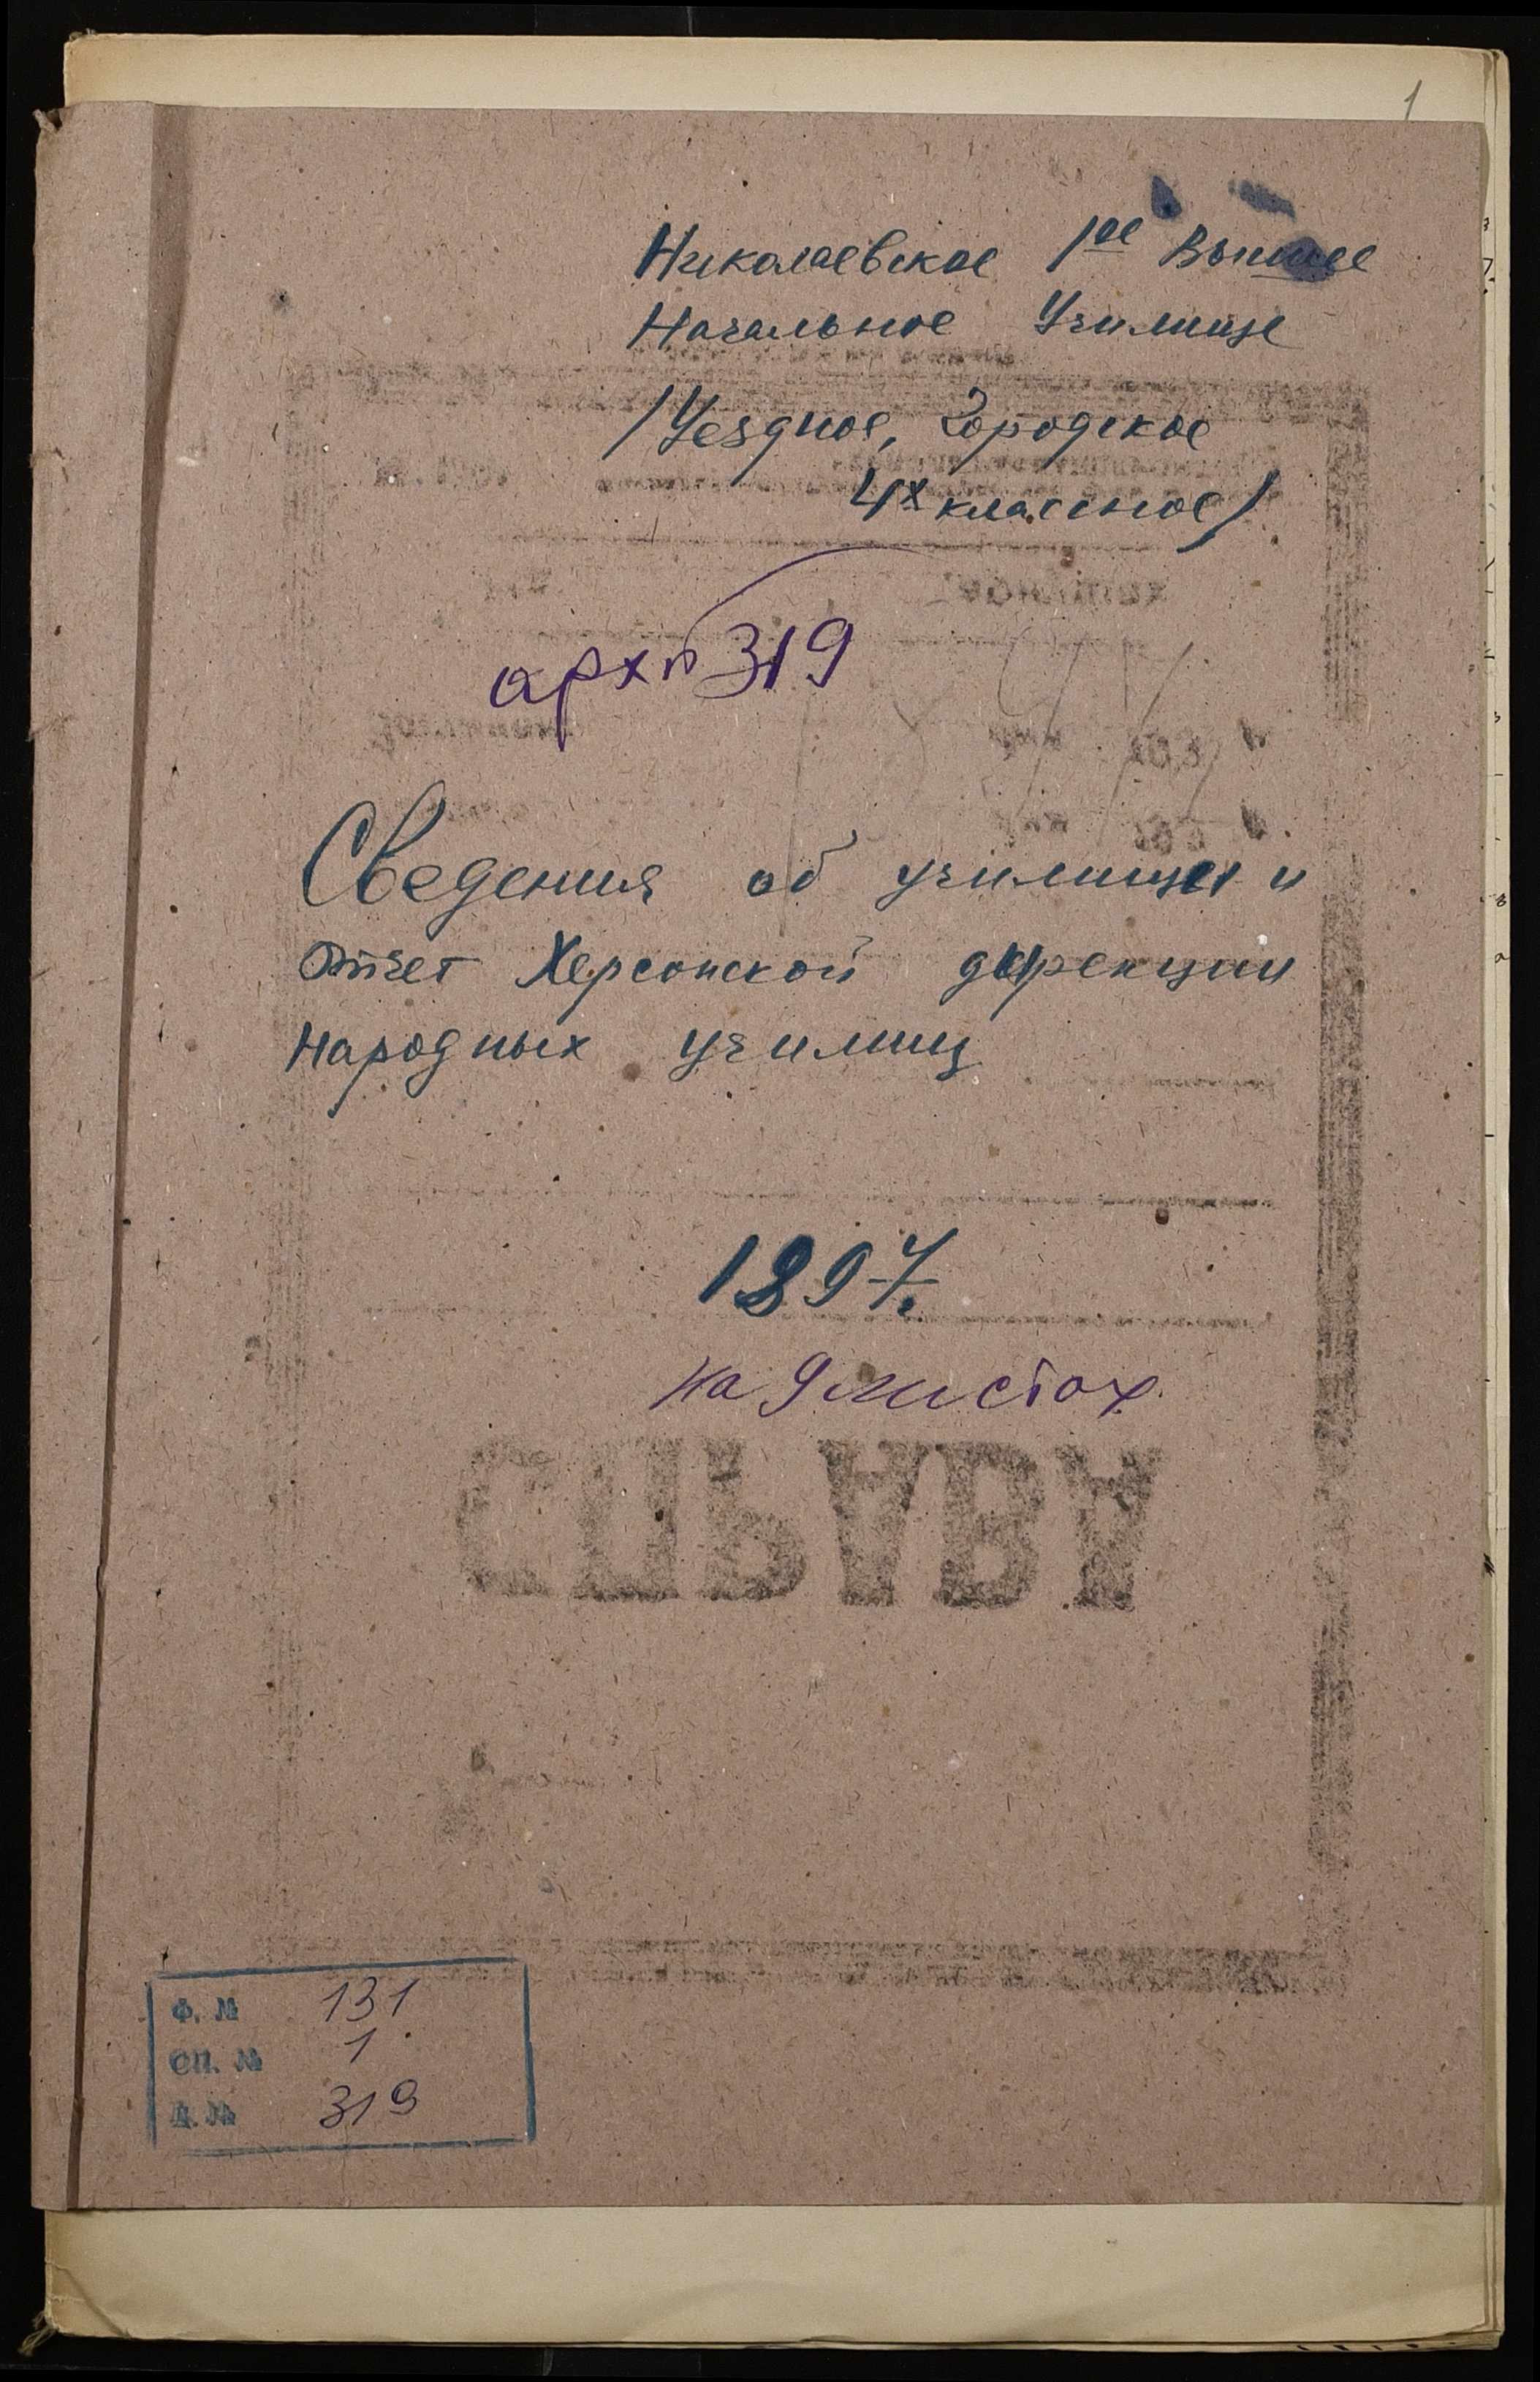 1
Николаевское 1ое Высшее
Начальное Училище
/Уездное, Городское
4х классное/
арх № 319
Сведения об училище и
Отчет Херсонской дирекции
народных училищ
1897.
на 9 листах
СПРАВА
Ф. № 131
ОП. № 1
Д. № 319